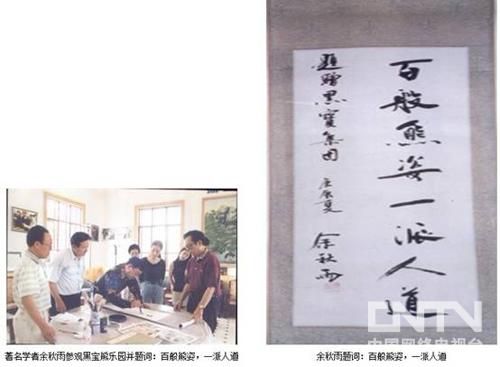 百般熊姿一派人道
題贈黑寶集团
庚辰夏
余秋雨
CNTV
中国网络电视台
著名学者余秋雨参观黑宝熊乐园并题词：百般熊姿，一派人道
余秋雨题词：百般熊姿，一派人道